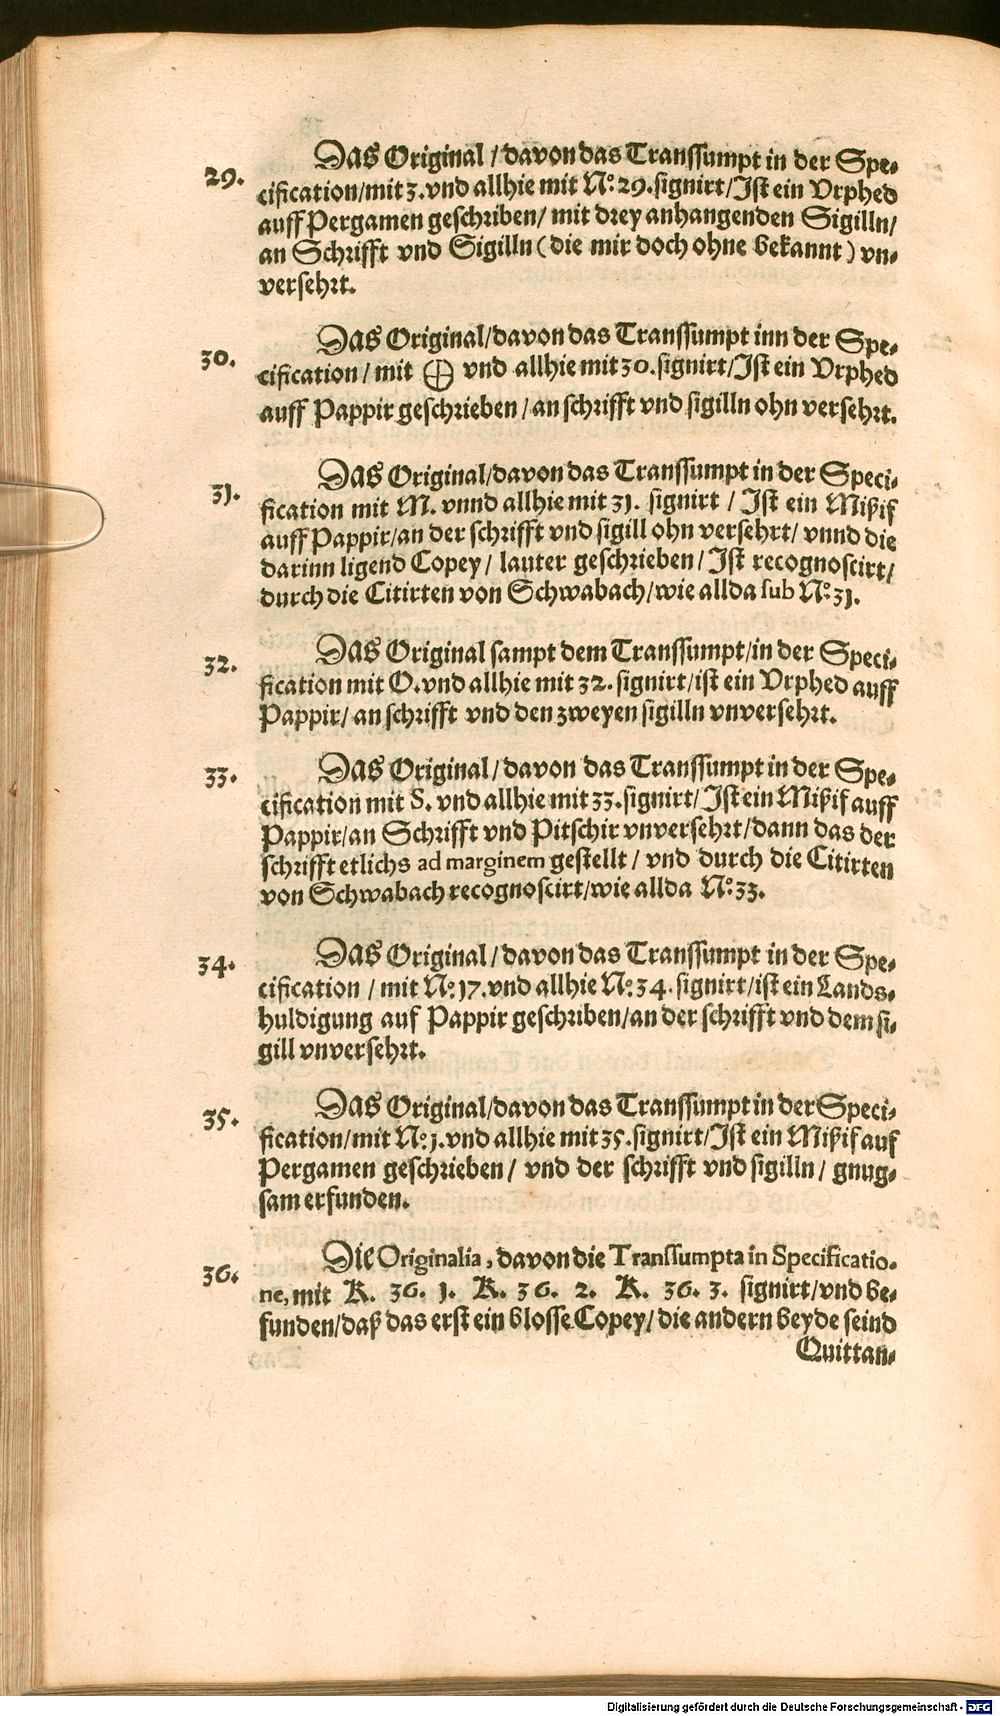 29. Das Original / davon das Transsumpt in der Spe-
cification/mit z. vnd allhie mit No: 29. signirt/Ist ein Vrphed
auff Pergamen geschriben/ mit drey anhangenden Sigilln/
an Schrifft vnd Sigilln (die mir doch ohne bekannt) vn-
versehrt.
30. Das Original/davon das Transsumpt inn der Spe-
cification / mit ⨁ vnd allhie mit 30. signirt/Ist ein Vrphed
auff Pappir geschrieben / an schrifft vnd sigilln ohn versehrt.
31. Das Original/davon das Transsumpt in der Speci-
fication mit M. vnnd allhie mit 31. signirt / Ist ein Mißif
auff Pappir/an der schrifft vnd sigill ohn versehrt/ vnnd die
darinn ligend Copey / lauter geschrieben / Ist recognoscirt/
durch die Citirten von Schwabach/wie allda sub No: 31.
32. Das Original sampt dem Transsumpt/in der Speci-
fication mit O. vnd allhie mit 32. signirt/ist ein Vrphed auff
Pappir/ an schrifft vnd den zweyen sigilln vnversehrt.
33. Das Original / davon das Transsumpt in der Spe-
cification mit S. vnd allhie mit 33. signirt/ Ist ein Mißif auff
Pappir/an Schrifft vnd Pitschir vnversehrt/dann das der
schrifft etlichs ad marginem gestellt / vnd durch die Citirten
von Schwabach recognoscirt/wie allda No: 33.
34. Das Original / davon das Transsumpt in der Spe-
cification / mit No: 17. vnd allhie No: 34. signirt/ist ein Lands-
huldigung auf Pappir geschriben/an der schrifft vnd dem si-
gill vnversehrt.
35. Das Original/davon das Transsumpt in der Speci-
fication/mit No: 1. vnd allhie mit 35. signirt/Ist ein Mißif auf
Pergamen geschrieben / vnd der schrifft vnd sigilln / gnug-
sam erfunden.
36. Die Originalia, davon die Transsumpta in Specificatio-
ne, mit K. 36. 1. K. 36. 2. K. 36. 3. signirt/vnd be-
funden/daß das erst ein blosse Copey/ die andern beyde seind
Quittan-
Digitalisierung gefördert durch die Deutsche Forschungsgemeinschaft - DFG